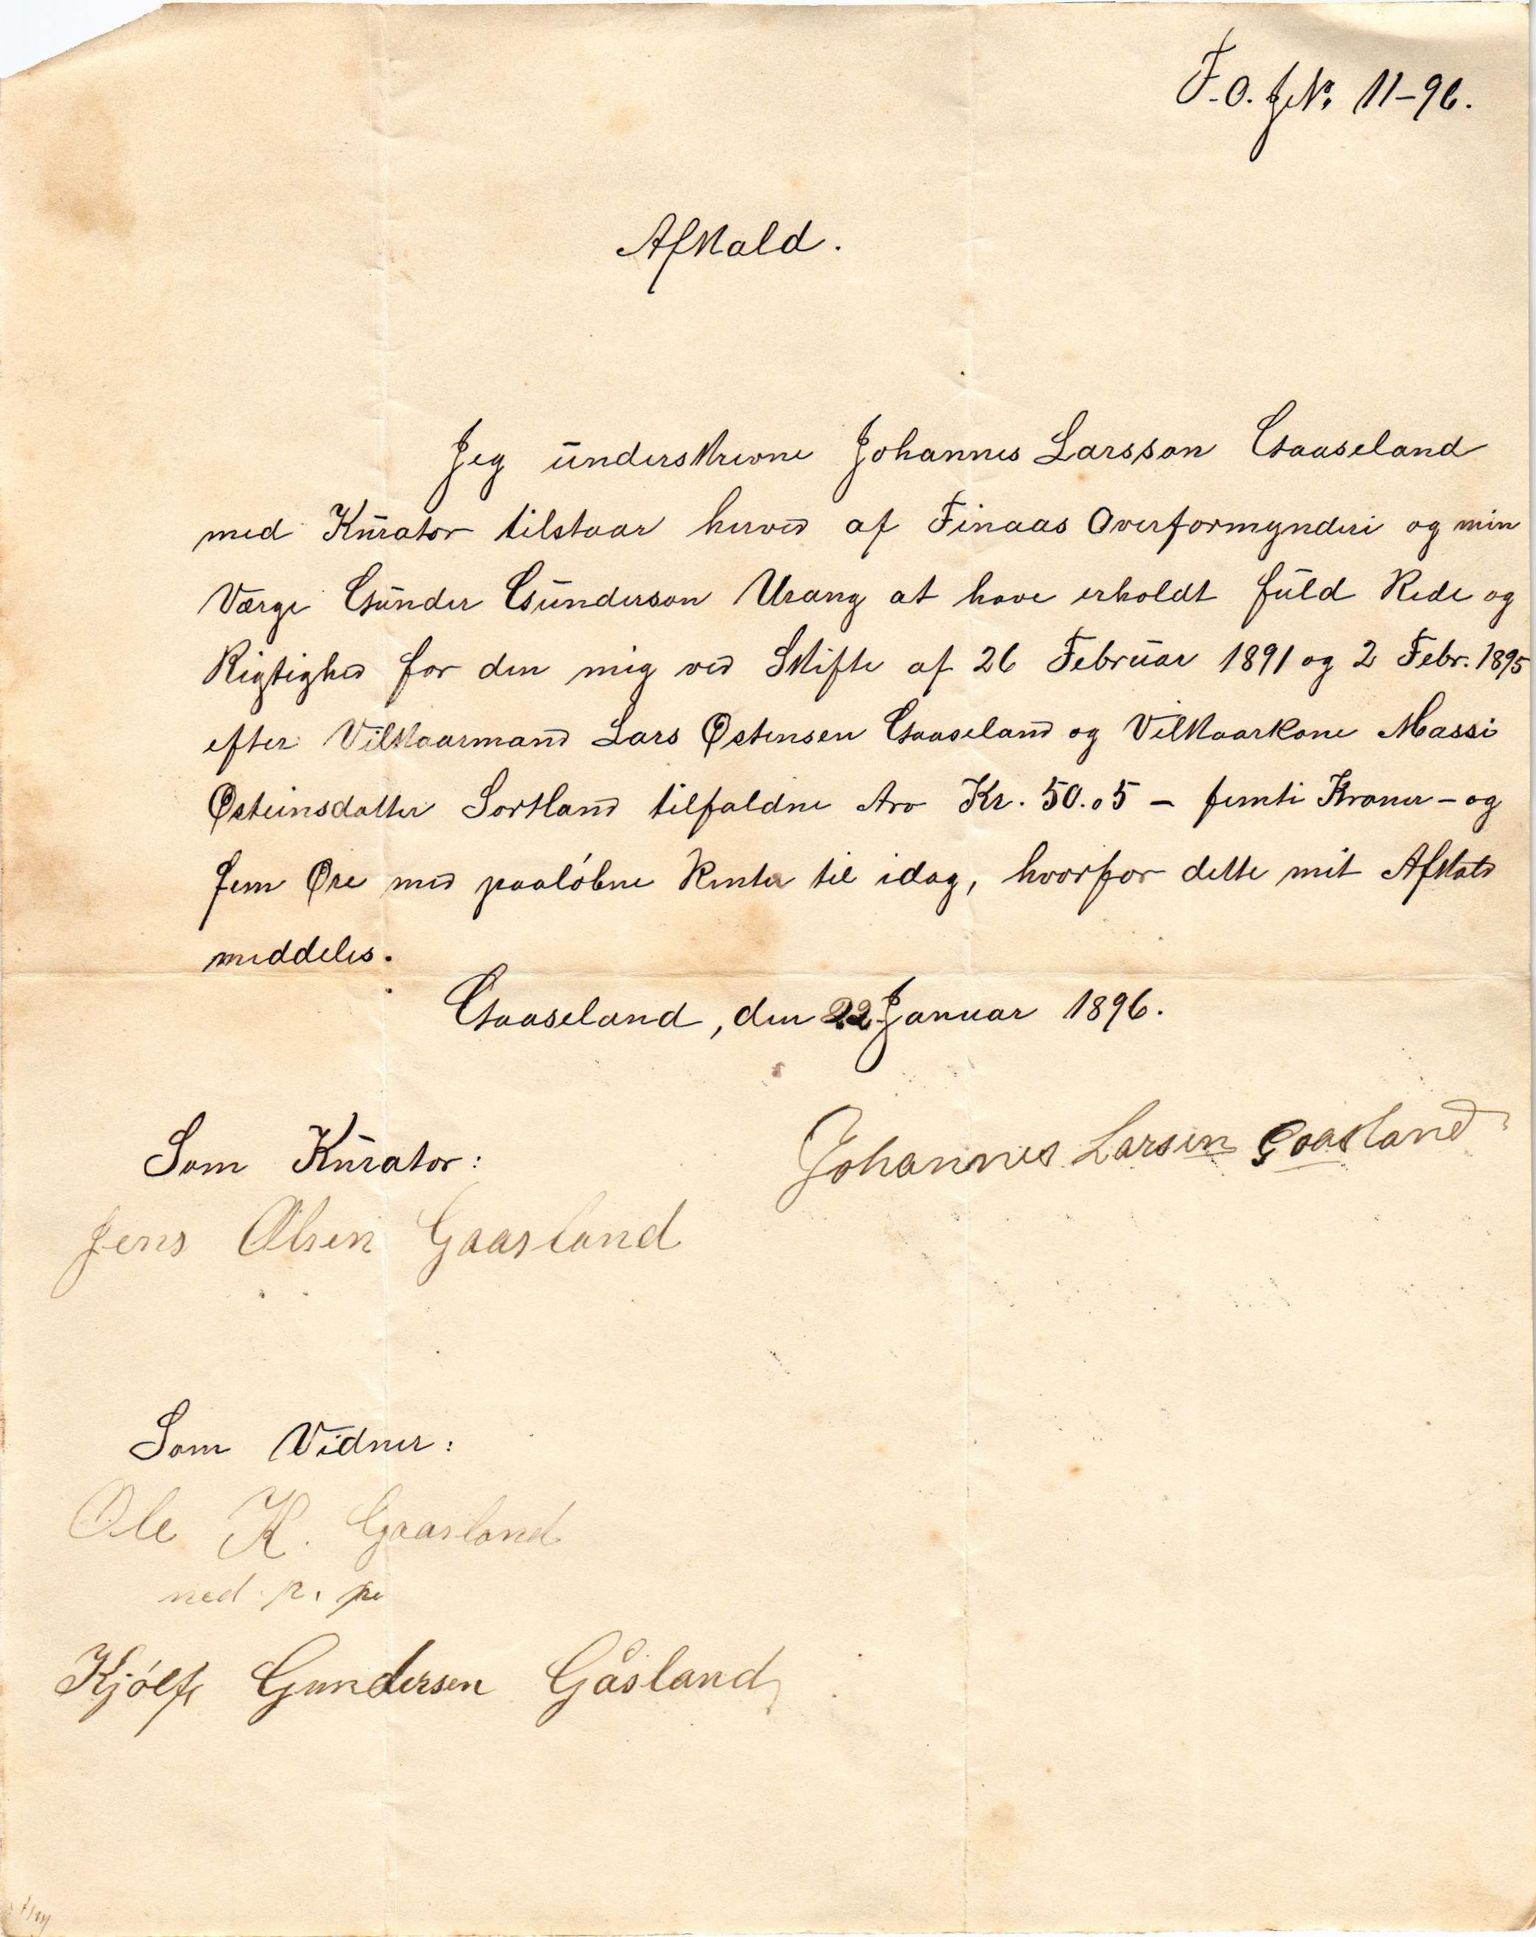 F.O. J.№ 11-96.
Afkald.
Jeg underskrevne Johannes Larsson Gaaseland
med Kurator tilstaar herved af Finaas Overformynderi og min
Værge Gunder Gunderson Urang at have erholdt fuld Rede og
Rigtighed for den mig ved Skifte af 26 Februar 1891 og 2 Febr. 1895
efter Vilkaarmand Lars Østensen Gaaseland og Vilkaarkone Massi
Østeinsdatter Sortland tilfaldne Arv Kr. 50.05 – femti Kroner – og
fem Øre med paaløbne Renter til idag, hvorfor dette mit Afkald
meddeles.
Gaaseland, den 22 Januar 1896.
Som Kurator:
Johannes Larsen Gaasland
Jens Olsen Gaasland
Som Vidner:
Ole K. Gaasland
med p. pe
Kjølf Gundersen Gåsland